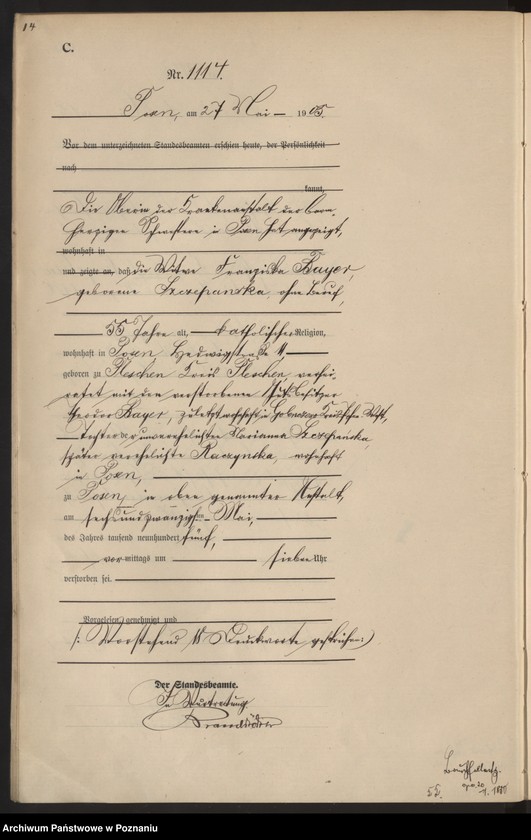 14
C.
Nr. 1114.
Posen, am 27 Mai 1905.
Vor dem unterzeichneten Standesbeamten erschien heute, der Persönlichkeit
nach
kannt,
Die Oberin der Krankenanstalt der barm-
herzigen Schwestern in Posen hat angezeigt,
wohnhaft in
und zeigte an, daß die Witwe Franziska Bayer,
geborene Szczepanska, ohne Beruf,
55 Jahre alt, katholischer Religion,
wohnhaft in Posen, Hedwigstraße 11,
geboren zu Pleschen Kreis Pleschen, verhei-
ratet mit dem verstorbenen Gutsbesitzer
Theodor Bayer, zuletzt wohnhaft in
Tochter der unverehelichten Marianna Szczepanska,
später verehelichte Raczynska, wohnhaft
in Posen,
zu Posen, in oben genannter Anstalt,
am sechsundzwanzigsten Mai
des Jahres tausend neunhundert fünf,
vormittags um sieben Uhr
verstorben sei.
Vorgelesen, genehmigt und
/: Vorstehend 18 Druckworte gestrichen :/
Der Standesbeamte.
In Vertretung.
55.
Archiwum Państwowe w Poznaniu